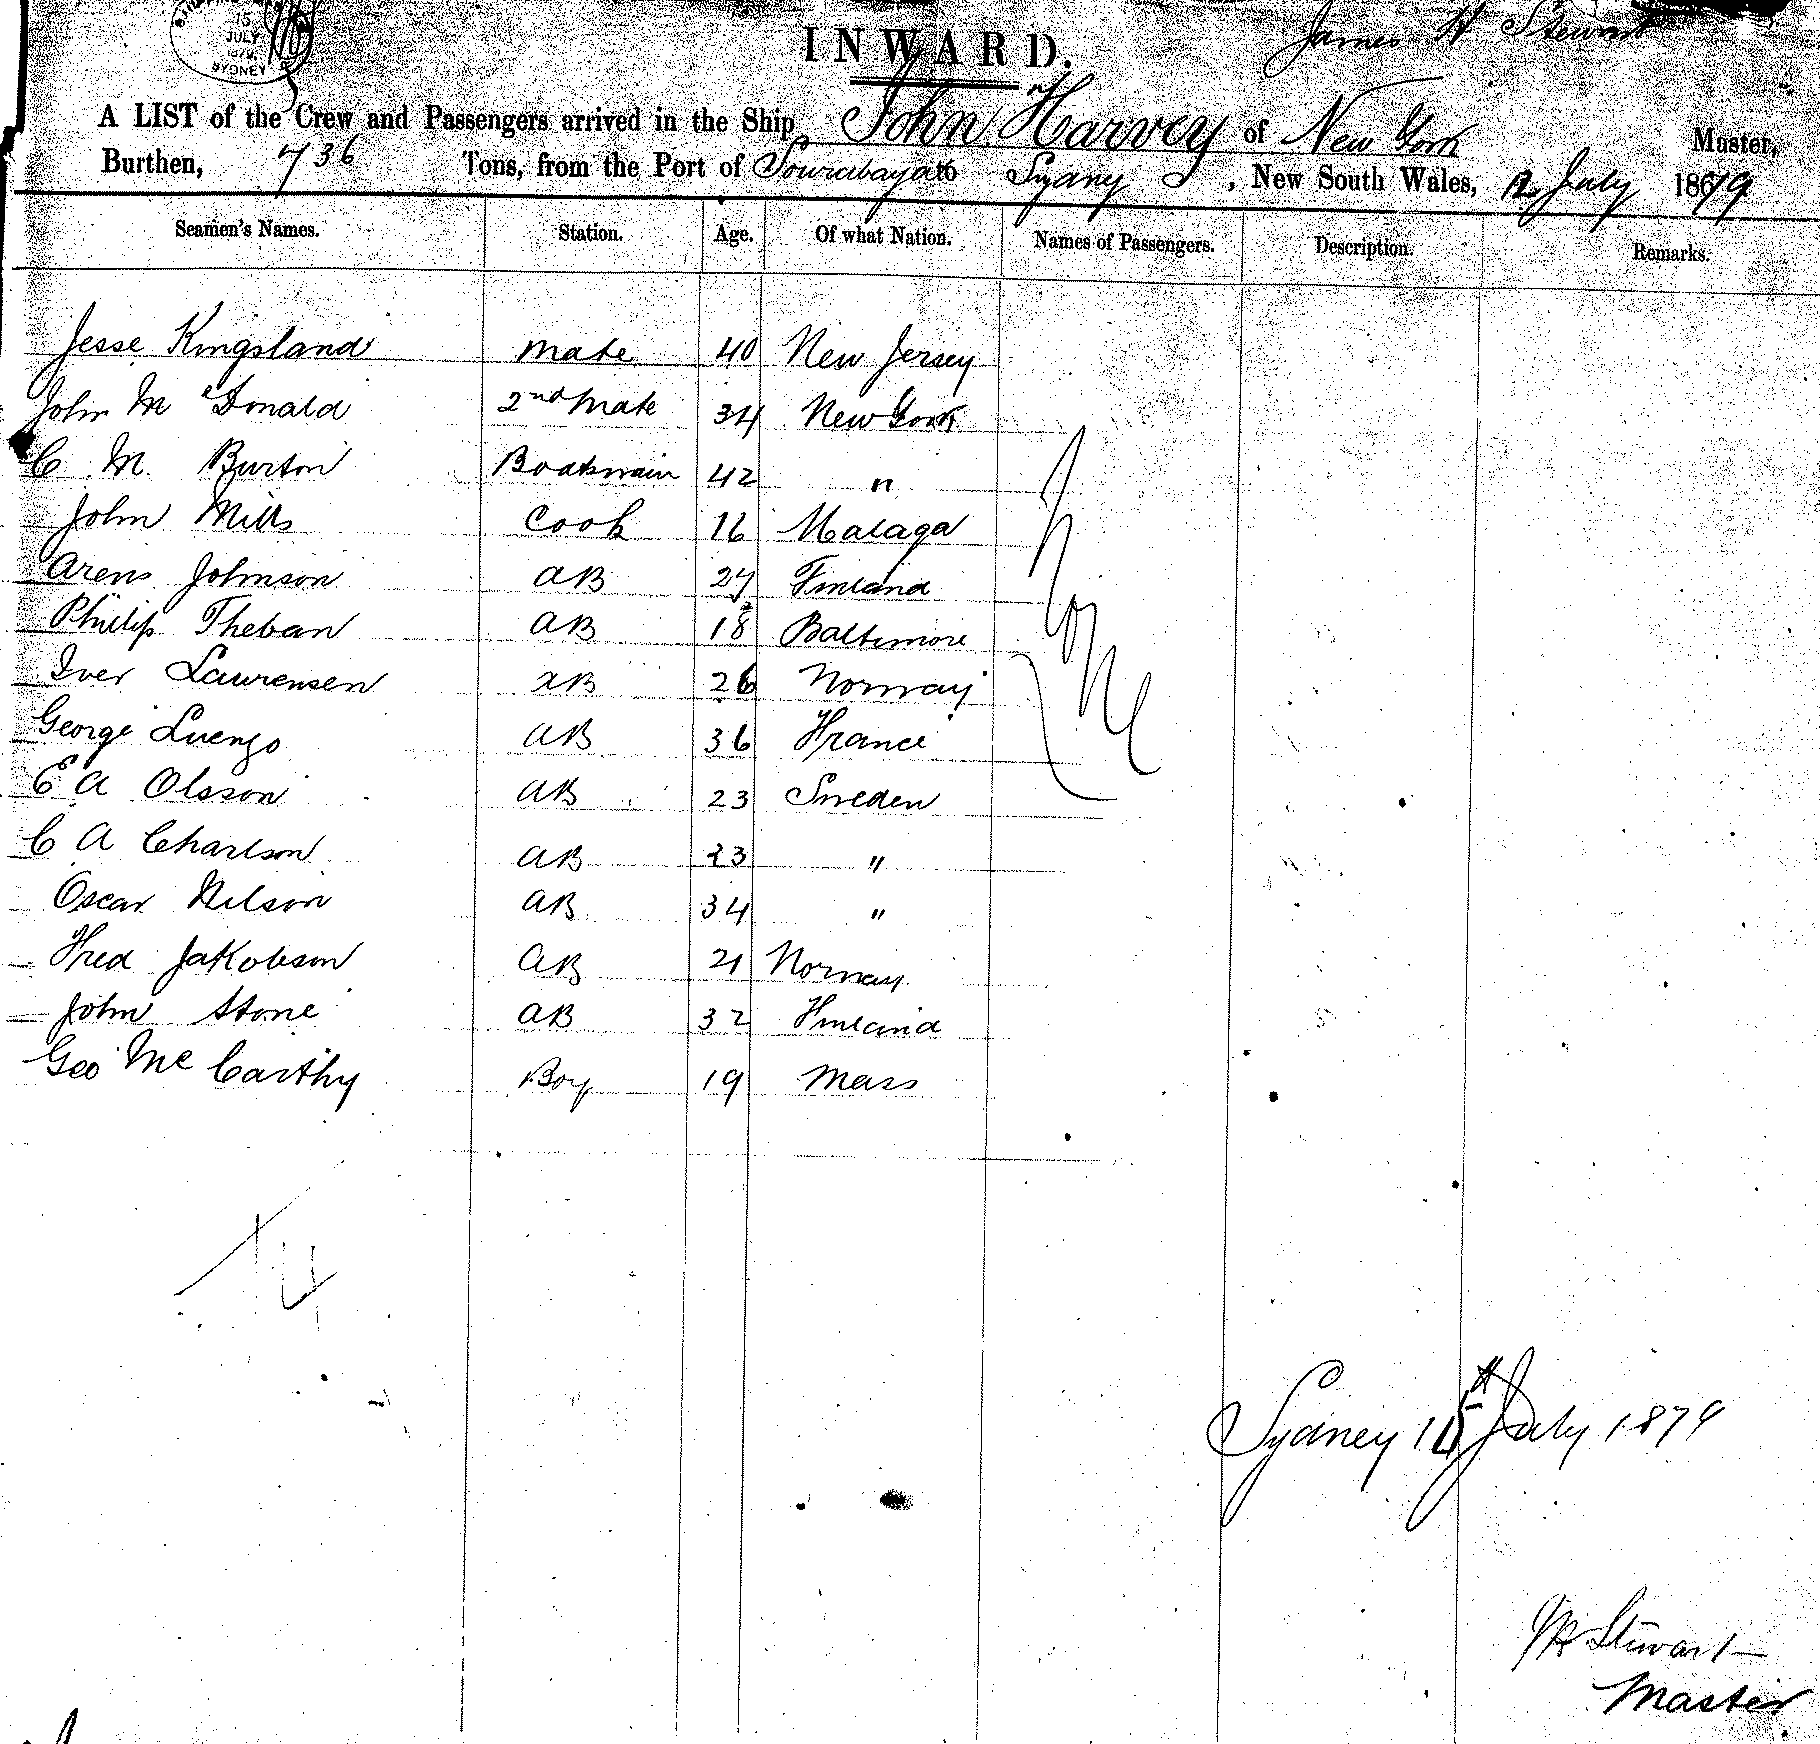 15
JULY
1879
SYDNEY
INWARD.
James H Stewart
A LIST of the Crew and Passengers arrived in the Ship John Harvey of New York Master,
Burthen, 736 Tons, from the Port of Sourabaya to Sydney, New South Wales, 12 July 1879
Seamen's Names. Station. Age. Of what Nation. Names of Passengers. Description. Remarks.
Jesse Kingsland mate 40 New Jersey
John Mc Donald 2nd Mate 34 New York
C M. Burton Boatswain 42 "
John Mills Cook 16 Malaga
Arens Johnson AB 27 Finland
Phillip Theban AB 18 Baltimore
Iver Laurensen AB 26 Norway
George Luengo AB 36 France
C A Olsson AB 23 Sweden
C A Charlson AB 23 "
Oscar Nilson AB 34 "
Fred Jakobson AB 21 Norway
John Stone AB 32 Finland
Geo Mc Carthy Boy 19 Mass
None
14
Sydney 15th July 1879
Stewart
Master